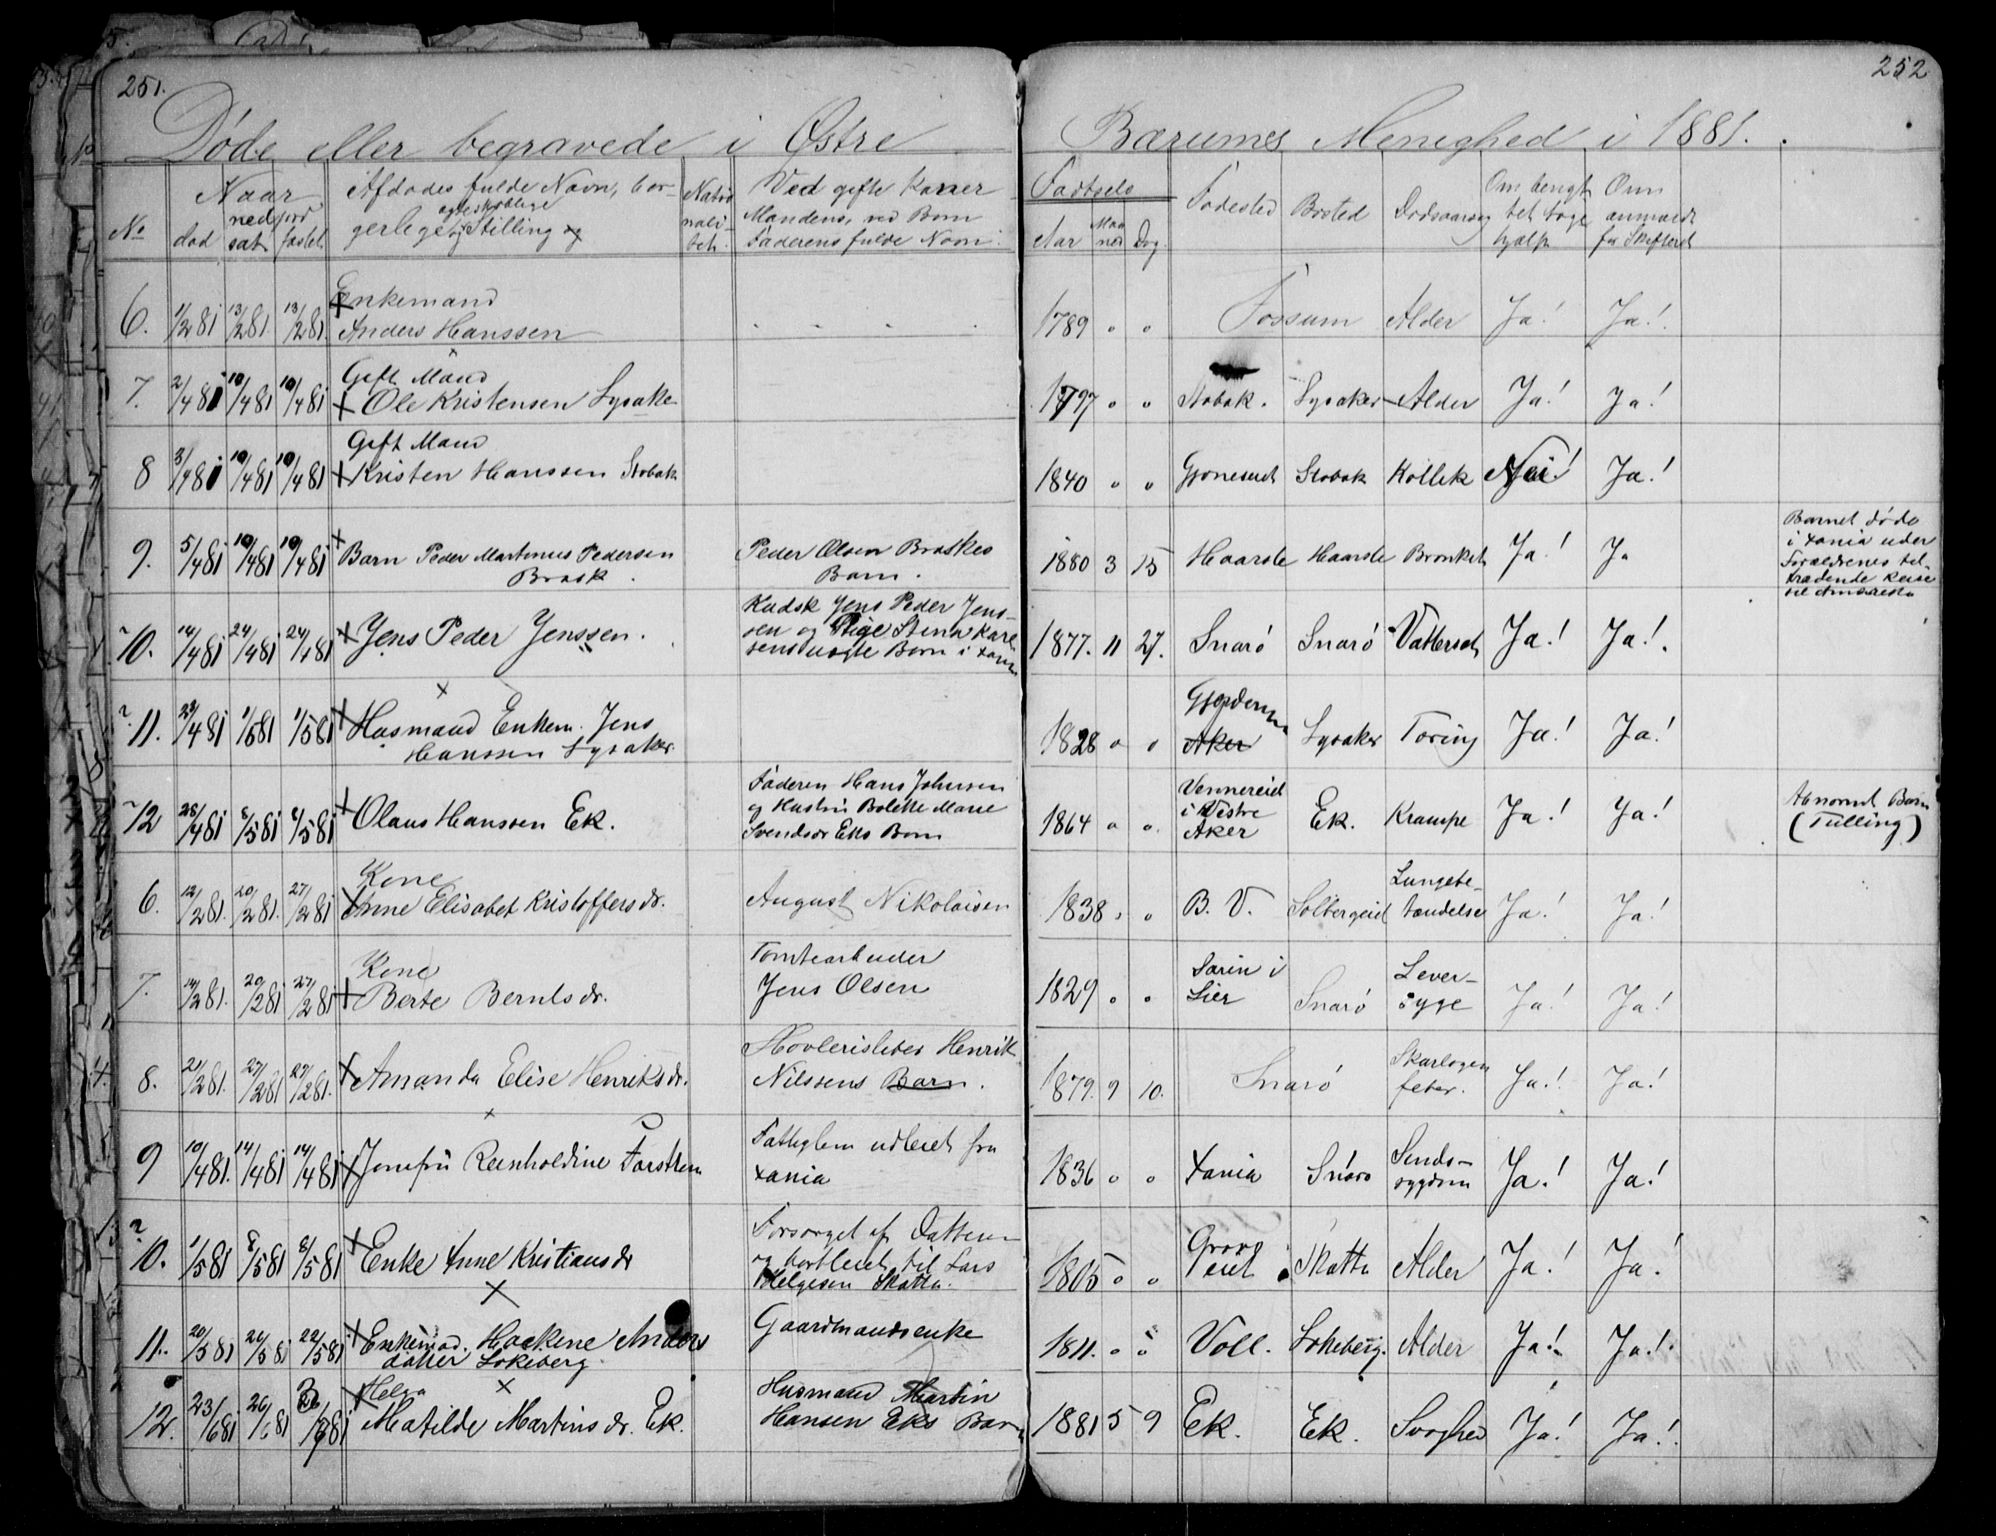 251.
252
Døde eller begravede i Østre Bærums Menighed i 1881.
No
Naar
død
ned sat
jord fæstet
Afdødes fulde Navn, bor-
gerlige og ægteskablige Stilling
Natio nali- tet.
Ved gifte Koner
Mandens, ved Børn
Faderens fulde Navn.
Fødsels
Aar Maaned Dag.
Fødested
Bosted
Dødsaarsag
Om bragt
Om anmældt
6. 1/2 81 13/2 81. 13/2 81. Enkemand
Anders Hanssen
1789 " " Fossum Alder Ja! Ja!
7. 2/4 81 10/4 81 10/4 81 Gift Mand
Ole Kristensen Lysaker
1797 " " Stabæk. Lysaker Alder Ja! Ja!
8 3/4 81 10/4 81 10/4 81 Gift Mand
Kristen Hanssen Stabæk
1840 " " Stabæk Nei! Ja!
9. 5/4 81 10/4 81 10/4 81 Barn Peder Martinus Pedersen
Brask.
Peder Olsen Braskes
Barn.
1880 3 15 Haarsle Haarsle Bronkit Ja! Ja
Barnet døde
i Xania under
Forældrenes
til Amerika
10. 14/4 81 24/4 81 24/4 81 Jens Peder Jenssen.
Kudsk Jens Peder Jens-
sen og Pige Stina Karl
sens uægte Barn i Xania
1877. 11 27. Snarö Snarö Vattersot Ja! Ja!
11. 23/4 81 1/5 81 1/5 81 Husmand Enkem. Jens
Hanssen Lysaker.
1828 " " Aker Lysaker Tæring Ja! Ja!
12 28/4 81 8/5 81 8/5 81 Olaus Hanssen Ek.
Faderen Hans Johnsen
og Hustru Bolette Marie
Svendsdr Eks Barn
1864 " " Vennereid
i Vestre
Aker
Ek. Krampe Ja! Ja!
Abnormt Barn
(Tulling)
6. 12/2 81. 20/2 81. 27/2 81 Kone
Anne Elisabet Kristoffersdr.
August Nikolaisen
1838 " " B. V. Solbergeid Lungebe-
tændelse Ja! Ja!
7. 14/2 81. 20/2 81 27/2 81 Kone
Berte Berntsdr.
Tomtearbeider
Jens Olsen
1829 " " i
Lier Snarö Lever-
syge Ja! Ja!
8. 21/2 81. 27/2 81 27/2 81. Amanda Elise Henriksdr.
Høvleribeier Henrik
Nilssens Barn.
1879. 9 10. Snarö Skarlagen
feber. Ja! Ja!
9 10/4 81. 14/4 81 14/4 81 Jomfru Reinholdine
Fattiglem udleiet fra
Xania
1836 " " Xania Snarö
sygdom Ja! Ja!
10. 1/5 81 8/5 81 8/5 81 Enke Anne Kristiansdr
Forsørget af Datteren
og bortleiet til Lars
Helgesen Skatta.
1805 " " Skatta Alder Ja! Ja!
11. 20/5 81 22/5 81 22/5 81 Haakine Anders
datter Lökeberg.
Gaardmandsenke
1811. " " Voll. Lökeberg. Alder Ja! Ja!
12. 23/6 81 26/6 81 Helga
Matilde Martinsdr. Ek.
Husmand Martin
Hansen Eks Barn
1881 5 9 Ek. Ek. Svaghed Ja! Ja!